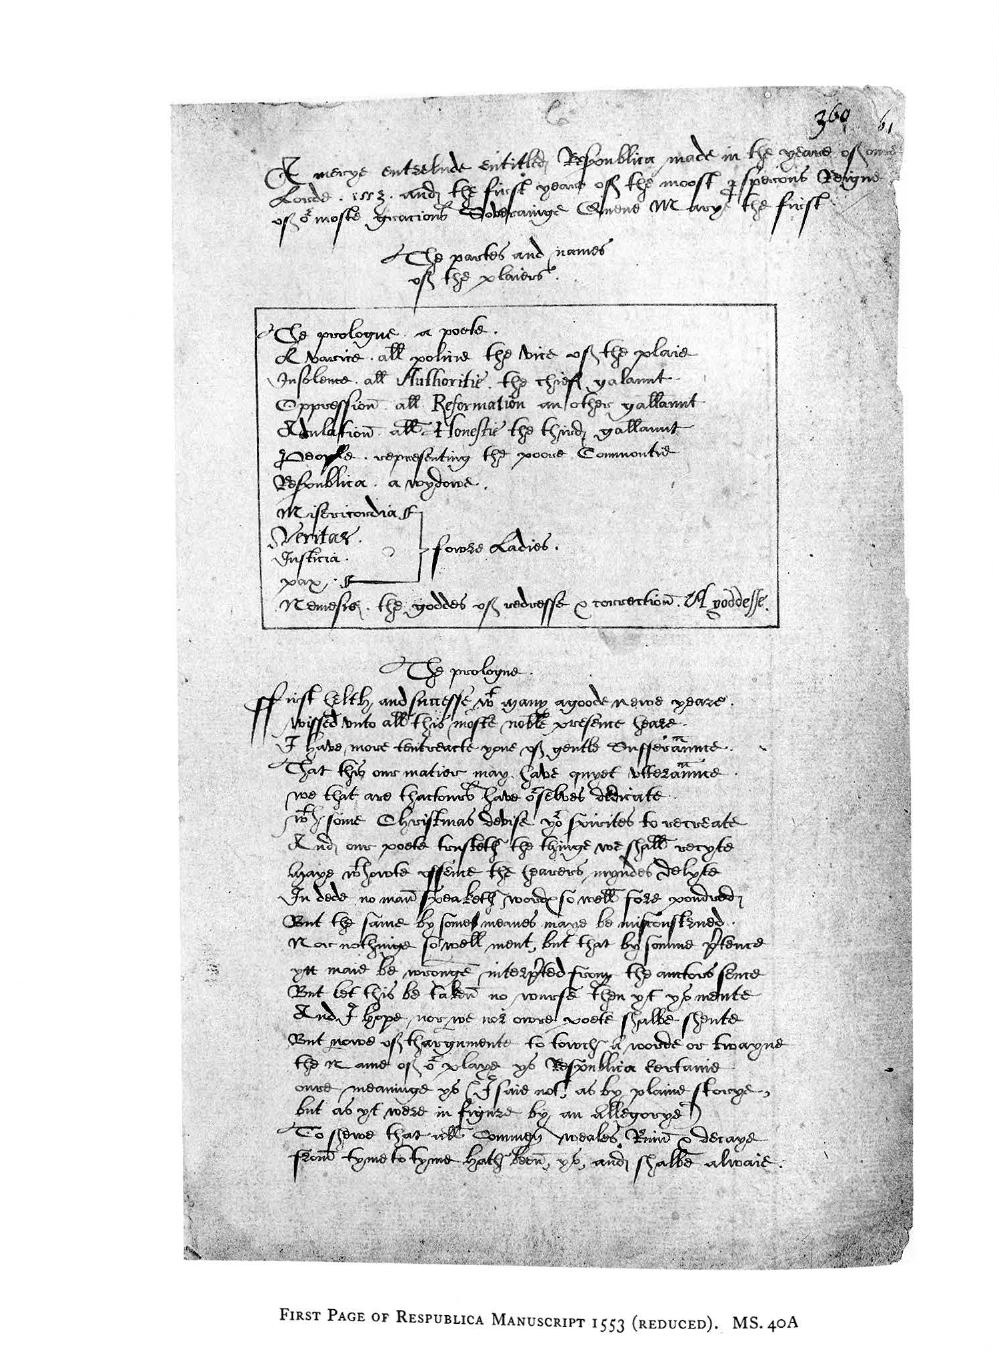 360 61
A merye entrelude entitled Respublica made in the yeare of owre
Lorde . 1553 . and the first yeare of the moost prosperous Reigne
of oʳ moste gracious Soveraigne Quene Marye the first
The partes and names
of the plaiers
The prologue . a poete .
Avarice . aƚƚ policie the vice of the plaie
Insolence . aƚƚ Authoritie . the chief galaunt
Oppression aƚƚ Reformation an other gallaunt
Adulation aƚƚ Honestie the third gallaunt
People . representing the poore Commontie
Respublica . a wydowe .
Misericordia
Veritas .
Iusticia .
pax .
fowre Ladies .
Nemesis . the goddes of redresse & correction . A goddesse .
The prologue .
ffirst helth and successe wᵗʰ many a goode newe yeare
wissed vnto aƚƚ this moste noble presence heare .
I have more tentreacte youe of gentle Sufferaunce .
That this our matier may have quyet vtteraunce .
we that are thactours have oʳselves dedicate
wᵗʰ some Christmas devise yoʳ spirites to recreate
And our poete trusteth the thinge we shaƚƚ recyte
maye wᵗʰowte offence the hearers myndes delyte
In dede no man speaketh wordes so weƚƚ fore pondred
But the same by some meanes maye be misconstrued .
Nor nothinge so weƚƚ ment, but that by somme pretence
ytt maie be wronge interpreted from the auctors sence
But let this be taken no wurse then yt ys mente
And I hope nor we nor owre poete shalbe shente
But nowe of thargumente to towch a worde or twayne
the Name of oʳ playe ys Respublica certaine
oure meaninge ys (I saie not, as by plaine storye,
but as yt were in figure by an allegorye)
To shewe that all Commen weales Ruin & decaye
from tyme to tyme hath been, ys, and shalbe alwaie .
FIRST PAGE OF RESPUBLICA MANUSCRIPT 1553 (REDUCED). MS. 40A